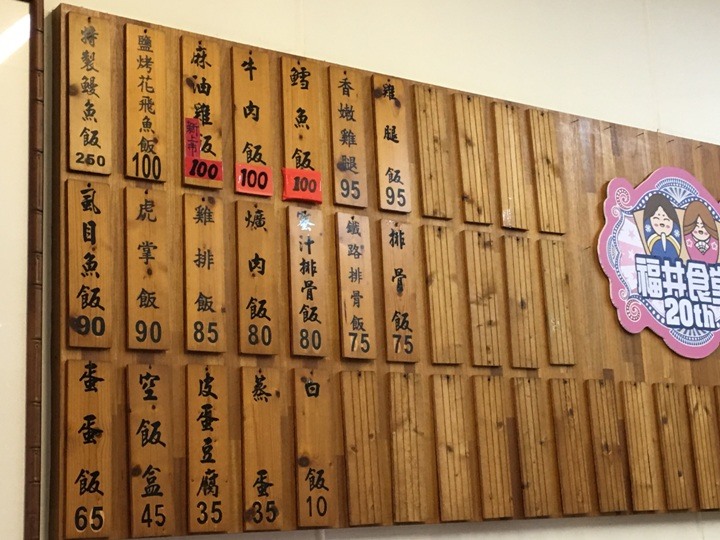 特製鰻魚飯 250
鹽烤花飛魚飯 100
麻油雞飯 新上市 100
牛肉飯 100
鱈魚飯 100
香嫩雞腿 95
雞腿飯 95
虱目魚飯 90
虎掌飯 90
雞排飯 85
爌肉飯 80
蜜汁排骨飯 80
鐵路排骨飯 75
排骨飯 75
蛋蛋飯 65
空飯盒 45
皮蛋豆腐 35
蒸蛋 35
白飯 10
福井食堂
20th